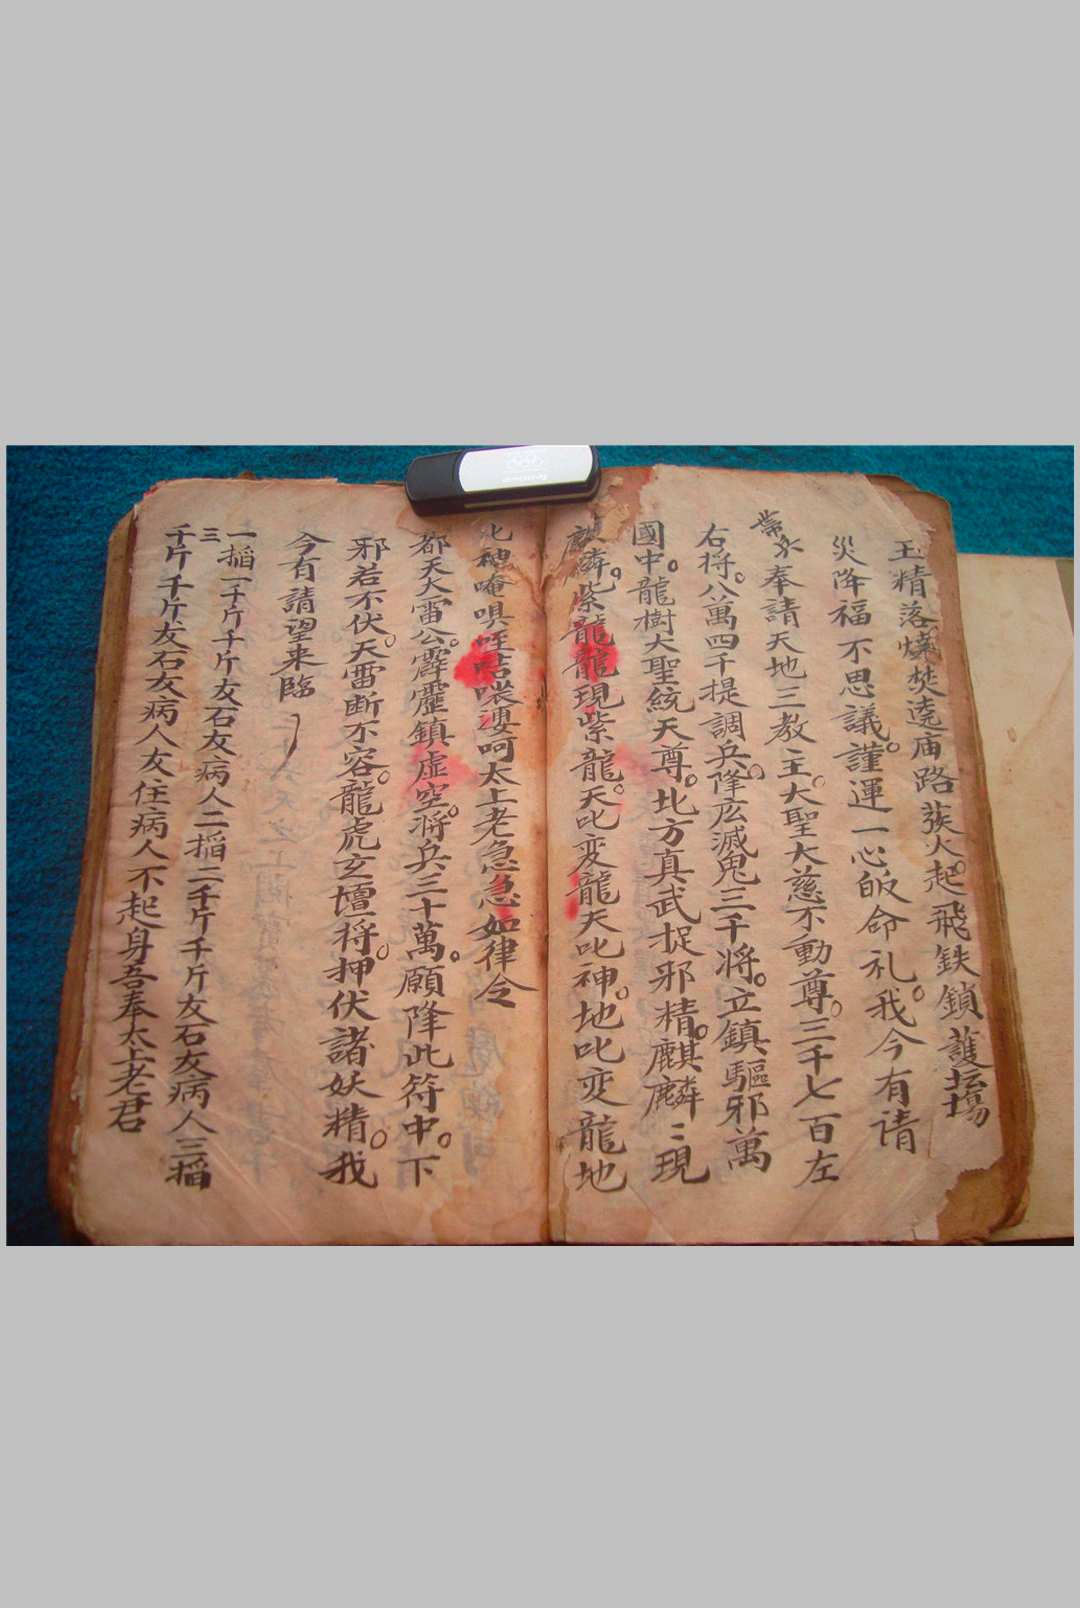 玉精落爍焚遶庙路蒺火起飛鉄鎖護坛場
災降福不思議謹運一心皈命礼我今有请
奉請天地三教主大聖大慈不動尊三千七百左
右将八萬四千提調兵降庅滅鬼三千將立鎮驅邪萬
國中龍樹大聖統天尊北方真武捉邪精麒麟二現
麟紫龍龍現紫龍天叱変龍天叱神地叱変龍地
唵唄咥咭㗙漊呵太上老急急如律令
都天大雷公霹靂鎮虛空將兵三十萬願降此符中下
邪若不伏天雷断不容龍虎玄壇将押伏諸妖精我
今有請望来臨
一稻一千斤千斤友石友病人二稻二千斤千斤友石友病人三稻
三千斤千斤友石友病人友住病人不起身吾奉太上老君